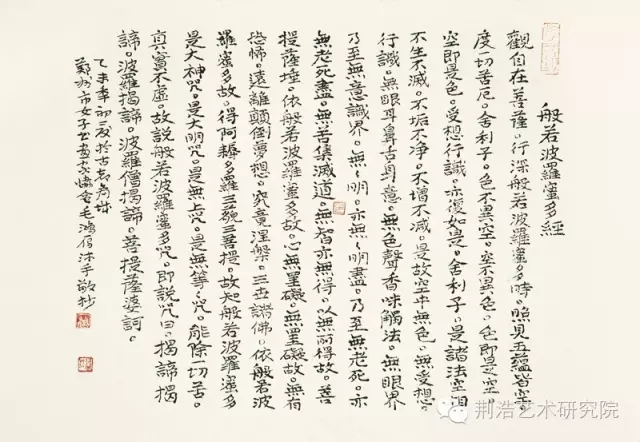 般若波羅蜜多經
觀自在菩薩。行深般若波羅蜜多時。照見五蘊皆空。
度一切苦厄。舍利子。色不異空。空不異色。色即是空。
空即是色。受想行識。亦復如是。舍利子。是諸法空相。
不生不滅。不垢不净。不增不減。是故空中無色。無受想
行識。無眼耳鼻舌身意。無色聲香味觸法。無眼界
乃至無意識界。無々明。亦無々明盡。乃至無老死。亦
無老死盡。無苦集滅道。無智亦無得。以無所得故。菩
提薩埵。依般若波羅蜜多故。心無罣礙。無罣礙故。無有
恐怖。遠離顛倒夢想。究竟涅槃。三世諸佛。依般若波
羅蜜多故。得阿耨多羅三藐三菩提。故知般若波羅蜜多
是大神咒。是大明咒。是無上咒。是無等々咒。能除一切苦。
真實不虛。故說般若波羅蜜多咒。即說咒曰。揭諦揭
諦。波羅揭諦。波羅僧揭諦。菩提薩婆訶。
乙未年卯二月於古
市女子書畫家協會毛鴻沐手敬抄
荆浩艺术研究院